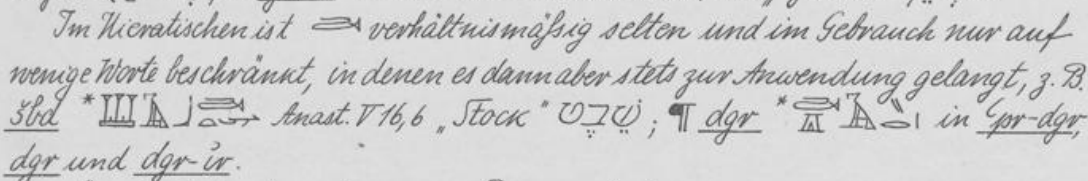 Im Hieratischen ist verhältnismäßig selten und im Gebrauch nur auf
wenige Worte beschränkt, in denen es dann aber stets zur Anwendung gelangt, z. B.
šbd * Anast. V 16,6 „Stock“ שֵׁבֶט; ¶ dgr * in ꜥpr-dgr,
dgr und dgr-ı͗r.